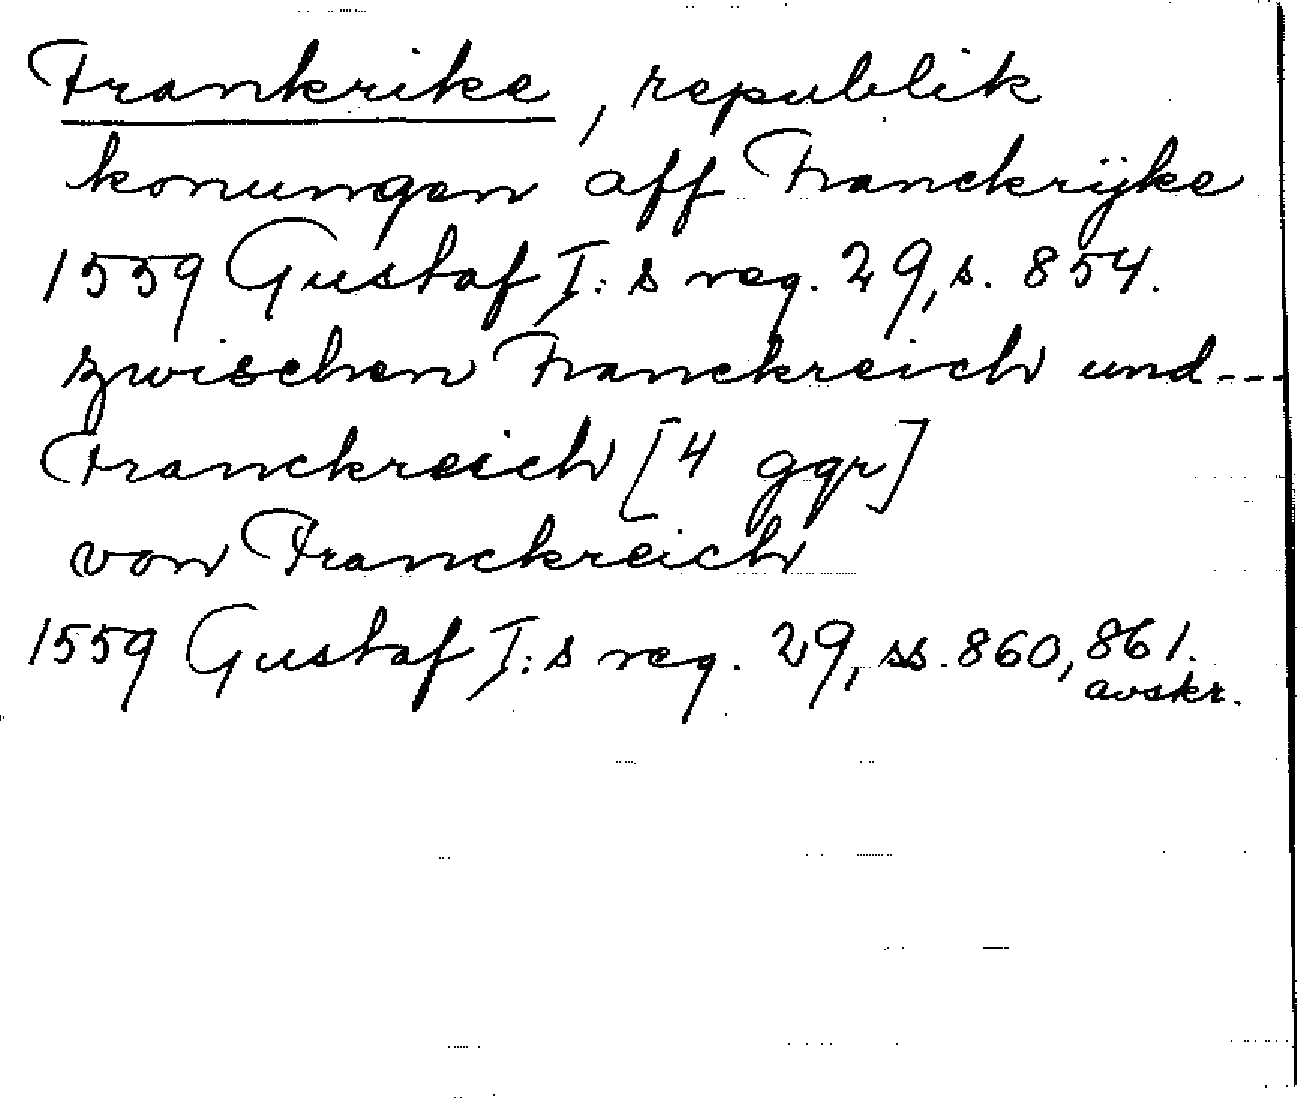 Frankrike, republik
konungen aff Franckrijke
1559 Gustaf I:s reg. 29, s. 854.
zwischen Franckreich und ---
Franckreich [4 ggr]
von Franckreich
1559 Gustaf I:s reg. 29, ss. 860, 861.
avskr.